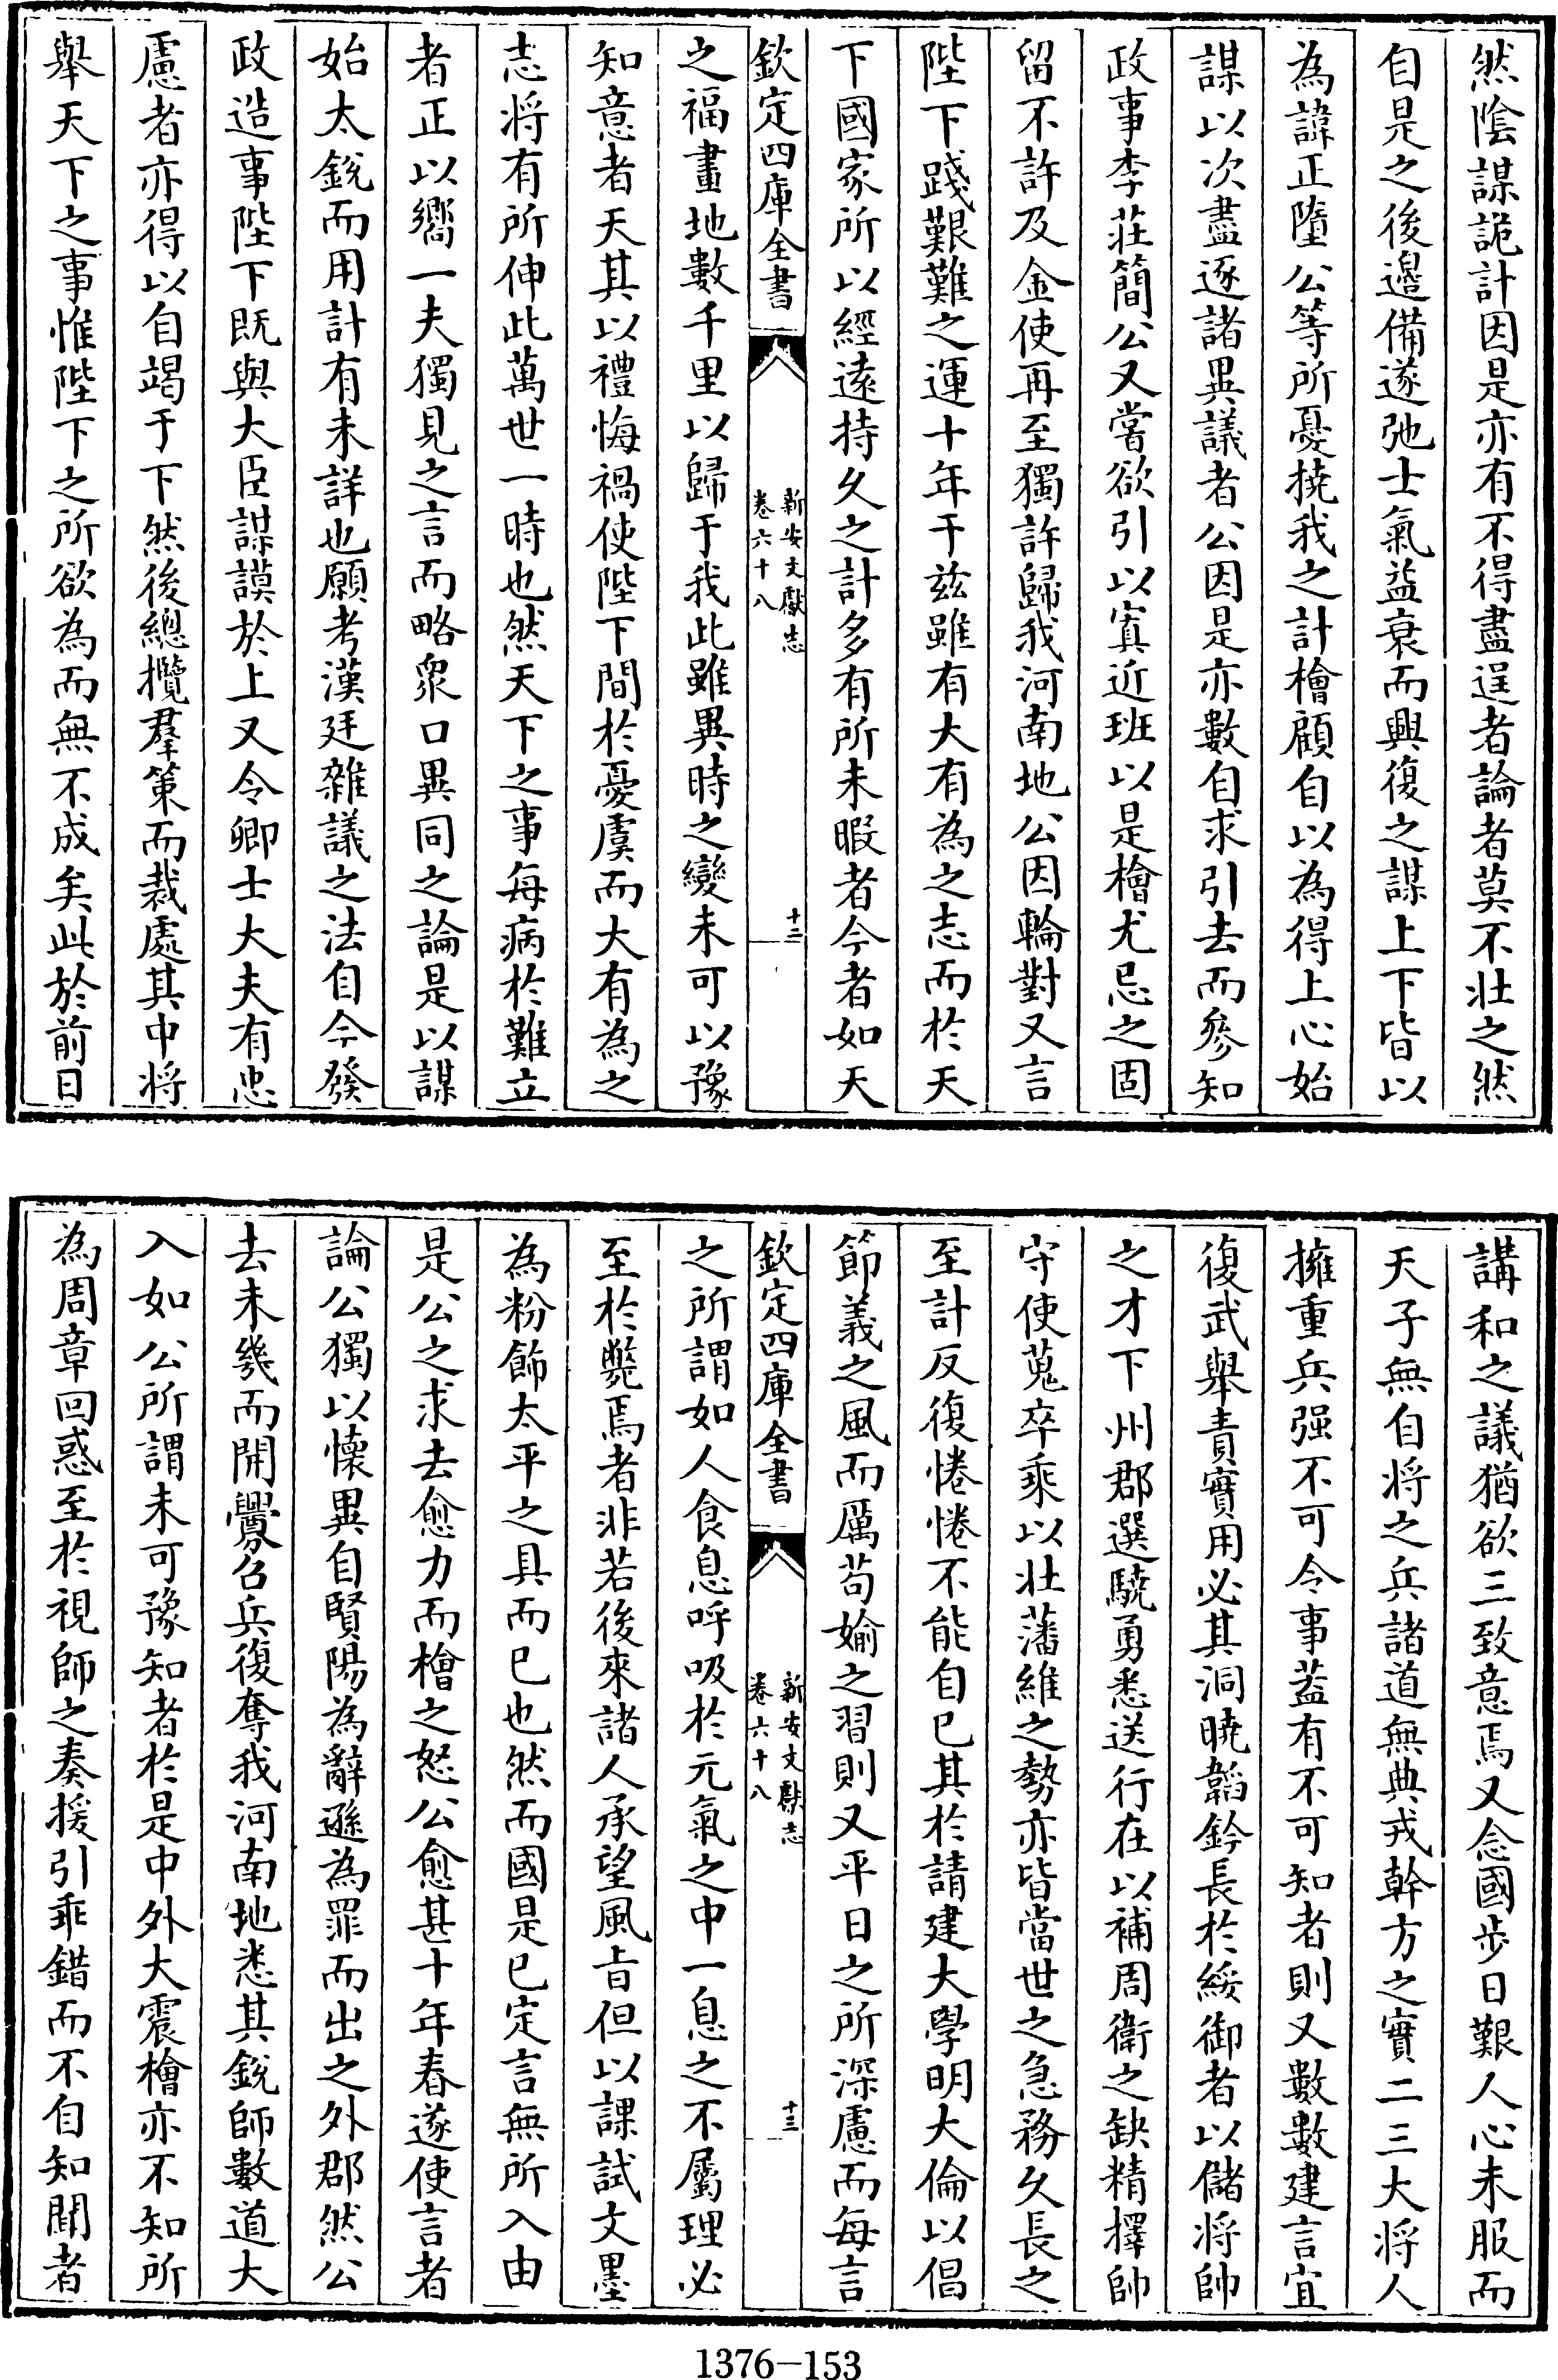 然陰謀詭計因是亦有不得盡逞者論者莫不壯之然
自是之後邊備遂弛士氣益衰而興復之謀上下皆以
為諱正墮公等所憂撓我之計檜顧自以為得上心始
謀以次盡逐諸異議者公因是亦數自求引去而參知
政事李莊簡公又嘗欲引以寘近班以是檜尤忌之固
留不許及金使再至獨許歸我河南地公因輪對又言
陛下踐艱難之運十年于兹雖有大有為之志而於天
下國家所以經遠持久之計多有所未暇者今者如天
欽定四庫全書
新安文獻志
卷六十八
十二
之福畫地數千里以歸于我此雖異時之變未可以豫
知意者天其以禮悔禍使陛下間於憂虞而大有為之
志將有所伸此萬世一時也然天下之事每病於難立
者正以嚮一夫獨見之言而略衆口異同之論是以謀
始太銳而用計有未詳也願考漢廷雜議之法自今發
政造事陛下既與大臣謀謨於上又令卿士大夫有忠
慮者亦得以自竭于下然後總攬羣策而裁處其中將
舉天下之事惟陛下之所欲為而無不成矣此於前日
講和之議猶欲三致意焉又念國步日艱人心未服而
天子無自將之兵諸道無典戎幹方之實二三大將人
擁重兵强不可令事葢有不可知者則又數數建言宜
復武舉責實用必其洞曉韜鈐長於綏御者以儲將帥
之才下州郡選驍勇悉送行在以補周衛之缺精擇帥
守使蒐卒乘以壯藩維之勢亦皆當世之急務久長之
至計反復惓惓不能自已其於請建大學明大倫以倡
節義之風而厲苟媮之習則又平日之所深慮而每言
欽定四庫全書
新安文獻志
卷六十八
十三
之所謂如人食息呼吸於元氣之中一息之不屬理必
至於斃焉者非若後來諸人承望風旨但以課試文墨
為粉飾太平之具而已也然而國是已定言無所入由
是公之求去愈力而檜之怒公愈甚十年春遂使言者
論公獨以懷異自賢陽為辭遜為罪而出之外郡然公
去未幾而開釁召兵復奪我河南地悉其銳師數道大
入如公所謂未可豫知者於是中外大震檜亦不知所
為周章回惑至於視師之奏援引乖錯而不自知聞者
1376-153